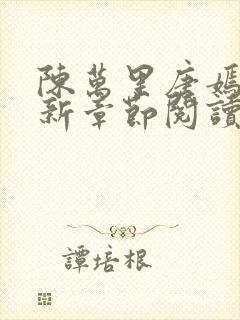 陳萬里唐嫣
新章節閱讀
譚培根